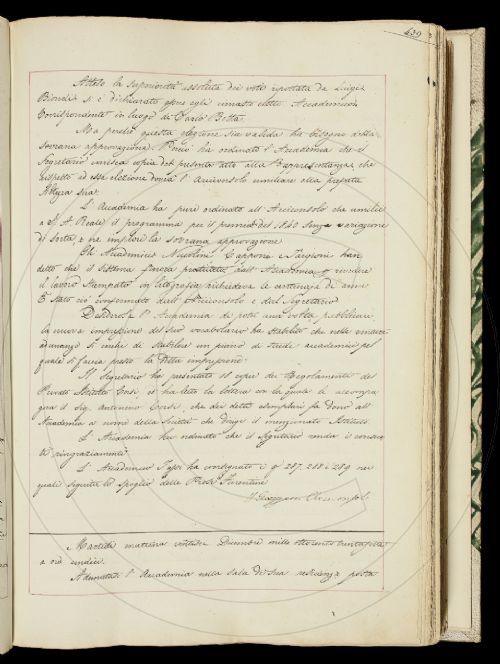 439
Atteso la superiorità assoluta dei voti riportata da Luigi
Biondi si è dichiarato essere egli rimasto eletto Accademico
Corrispondente in luogo di Carlo Botta.
Ma perché questa elezione sia valida ha bisogno della
sovrana approvazione. Perciò ha ordinato l'Accademia che il
Segretario unisca copia del presente atto alla Rappresentanza che
rispetto ad essa elezione dovrà l'Arciconsolo umiliare alla prefata
Altezza sua.
L'Accademia ha pure ordinato all'Arciconsolo che umilii
a S. A. Reale il programma per il premio del 1840 senza variazione
di sorta, e ne implori la sovrana approvazione
Gli Accademici Niccolini, Capponi e Targioni han
detto che il sistema finora praticato dall'Accademia di rivedere
il lavoro stampato in litografia richiedeva le centinaja di anni
È stato ciò confermato dall'Arciconsolo e dal Segretario
Desiderosa l'Accademia di poter una volta pubblicare
la nuova impressione del suo vocabolario ha stabilito che nelle venture
adunanze si cerchi di stabilire un piano di studi accademici pel
quale si faccia presto la detta impressione.
Il Segretario ha presentato sei copie dei Regolamenti del
Privato Istituto Corsi, e ha letto la lettera con la quale le accompa
gna il Sig. Antonino Corsi, che dei detti esemplari fa dono all'
Accademia a nome della Società che dirige il menzionato Istituto.
L'Accademia ha ordinato che il Segretario renda i consue
ti ringraziamenti
L'Accademico Tassi ha consegnato i q. 287. 288 e 289 nei
quali seguita lo spoglio delle Prose Fiorentine
Martedì mattina ventisei Dicembre mille ottocento trentasette
a ore undici.
Adunatasi l'Accademia nella sala di sua residenza posta